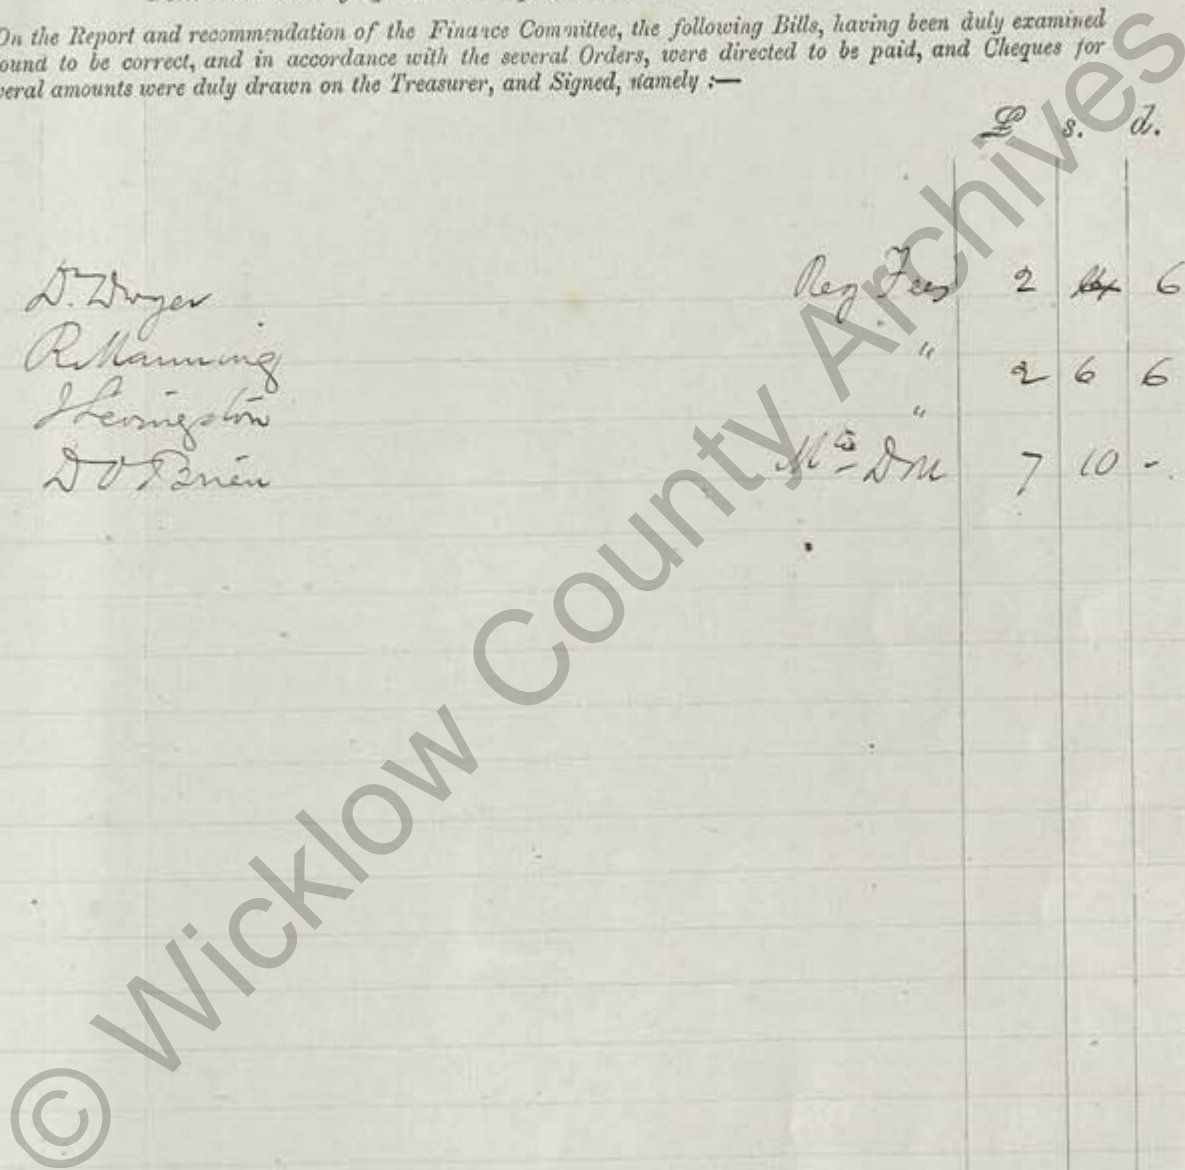 On the Report and recommendation of the Finance Committee, the following Bills, having been duly examined
ound to be correct, and in accordance with the several Orders, were directed to be paid, and Cheques for
veral amounts were duly drawn on the Treasurer, and Signed, namely :—
£ s. d.
D. Dwyer Reg Fees 2 6
R Manning " 2 6 6
J Levingston "
D O'Brien 7 10 -
© Wicklow County Archives